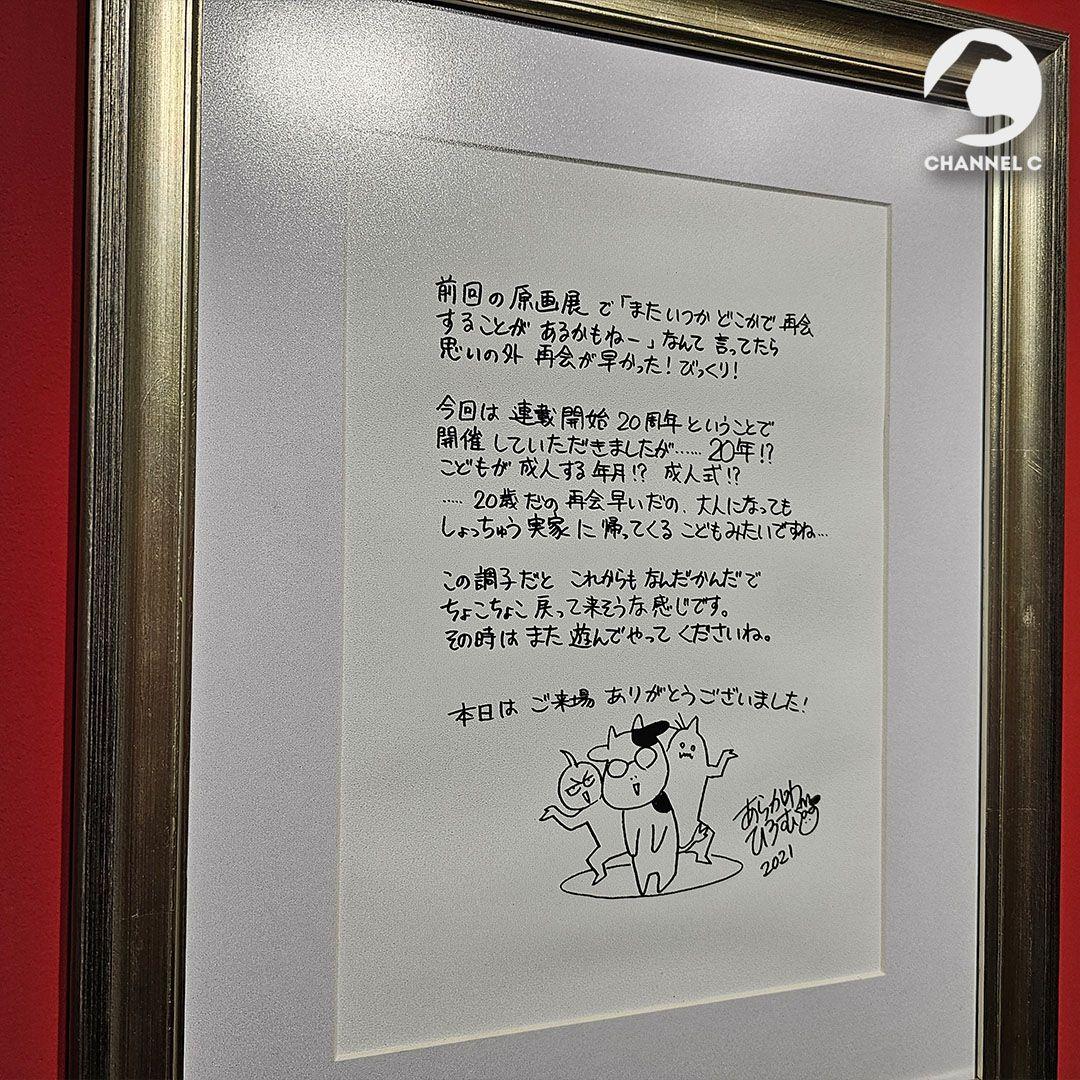 CHANNEL C
前回の原画展で「またいつかどこかで再会
することがあるかもねー」なんて言ってたら
思いの外 再会が早かった!びっくり!
今回は 連載開始 20周年ということで
開催していただきましたが……20年!?
こどもが成人する年月!? 成人式!?
……20歳だの再会早いだの、大人になっても
しょっちゅう実家に帰ってくるこどもみたいですね…
この調子だと これからもなんだかんだで
ちょこちょこ戻って来そうな感じです。
その時はまた遊んでやってくださいね。
本日は ご来場 ありがとうございました!
あらかわ
ひろむ
2021